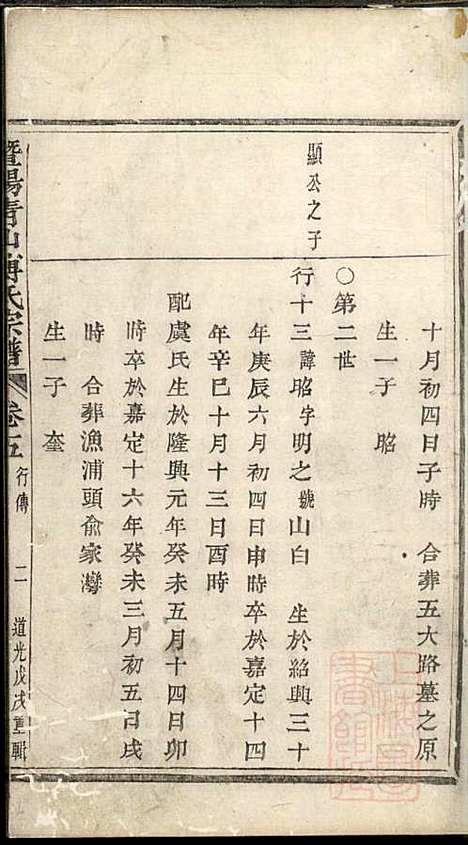 十月初四日子時 合葬五大路墓之原
生一子 昭
○第二世
顯公之子
行十三諱昭字明之號山白 生於紹興三十
年庚辰六月初四日申時卒於嘉定十四
年辛巳十月十三日酉時
配虞氏生於隆興元年癸未五月十四日卯
時卒於嘉定十六年癸未三月初五日戌
時 合葬漁浦頭俞家灣
生一子 奎
暨陽青山傅氏宗譜 卷五 行傳 二 道光戊戌重輯